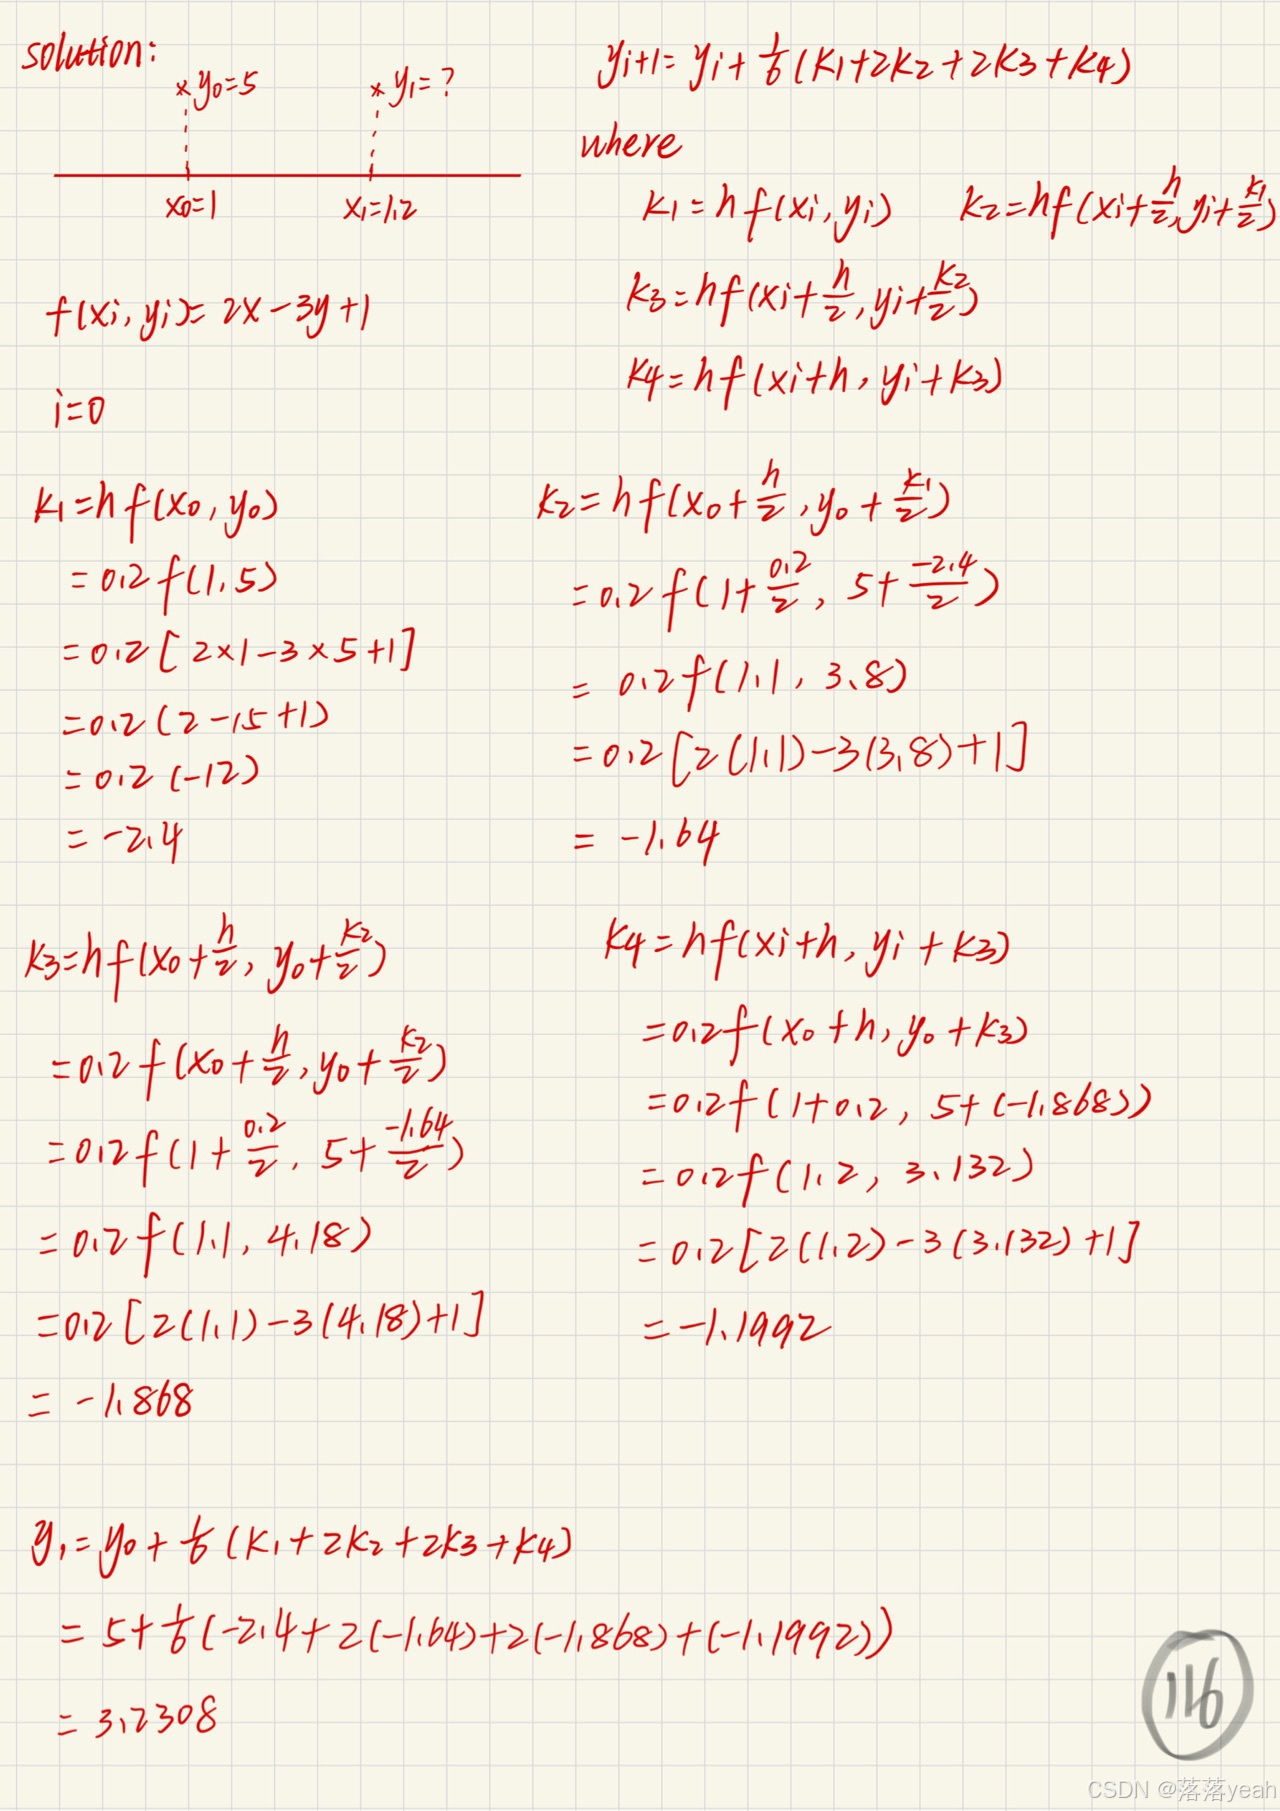 solution:
y₀=5 y₁=?
x₀=1 x₁=1.2
yᵢ₊₁=yᵢ+1/6(K₁+2K₂+2K₃+K₄)
where
K₁=hf(xᵢ,yᵢ) K₂=hf(xᵢ+h/2,yᵢ+K₁/2)
K₃=hf(xᵢ+h/2,yᵢ+K₂/2)
K₄=hf(xᵢ+h,yᵢ+K₃)
f(xᵢ,yᵢ)=2x-3y+1
i=0
K₁=hf(x₀,y₀)
=0.2f(1,5)
=0.2[2×1-3×5+1]
=0.2(2-15+1)
=0.2(-12)
=-2.4
K₂=hf(x₀+h/2,y₀+K₁/2)
=0.2f(1+0.2/2,5+-2.4/2)
=0.2f(1.1,3.8)
=0.2[2(1.1)-3(3.8)+1]
=-1.64
K₃=hf(x₀+h/2,y₀+K₂/2)
=0.2f(x₀+h/2,y₀+K₂/2)
=0.2f(1+0.2/2,5+-1.64/2)
=0.2f(1.1,4.18)
=0.2[2(1.1)-3(4.18)+1]
=-1.868
K₄=hf(xᵢ+h,yᵢ+K₃)
=0.2f(x₀+h,y₀+K₃)
=0.2f(1+0.2,5+(-1.868))
=0.2f(1.2,3.132)
=0.2[2(1.2)-3(3.132)+1]
=-1.1992
y₁=y₀+1/6(K₁+2K₂+2K₃+K₄)
=5+1/6(-2.4+2(-1.64)+2(-1.868)+(-1.1992))
=3.2308
116
CSDN @落落yeah